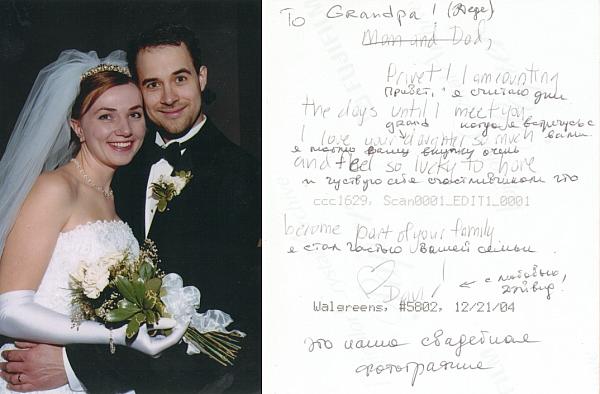 To Grandpa! (Деде)
Mom and Dad,
Privet! I am counting
Привет, я считаю дни
the days until I meet you
grand когда я встречусь с вами
I love your daughter so much
я люблю вашу внучку очень
and feel so lucky to have
и чуствую себя счастливчиком что
ccc1629, Scan0001_EDIT1_0001
become part of your family
я стал частью вашей семьи.
Dave! ← с любовью, Дэйвид!
Walgreens, #5802, 12/21/04
это наша свадебная
фотография